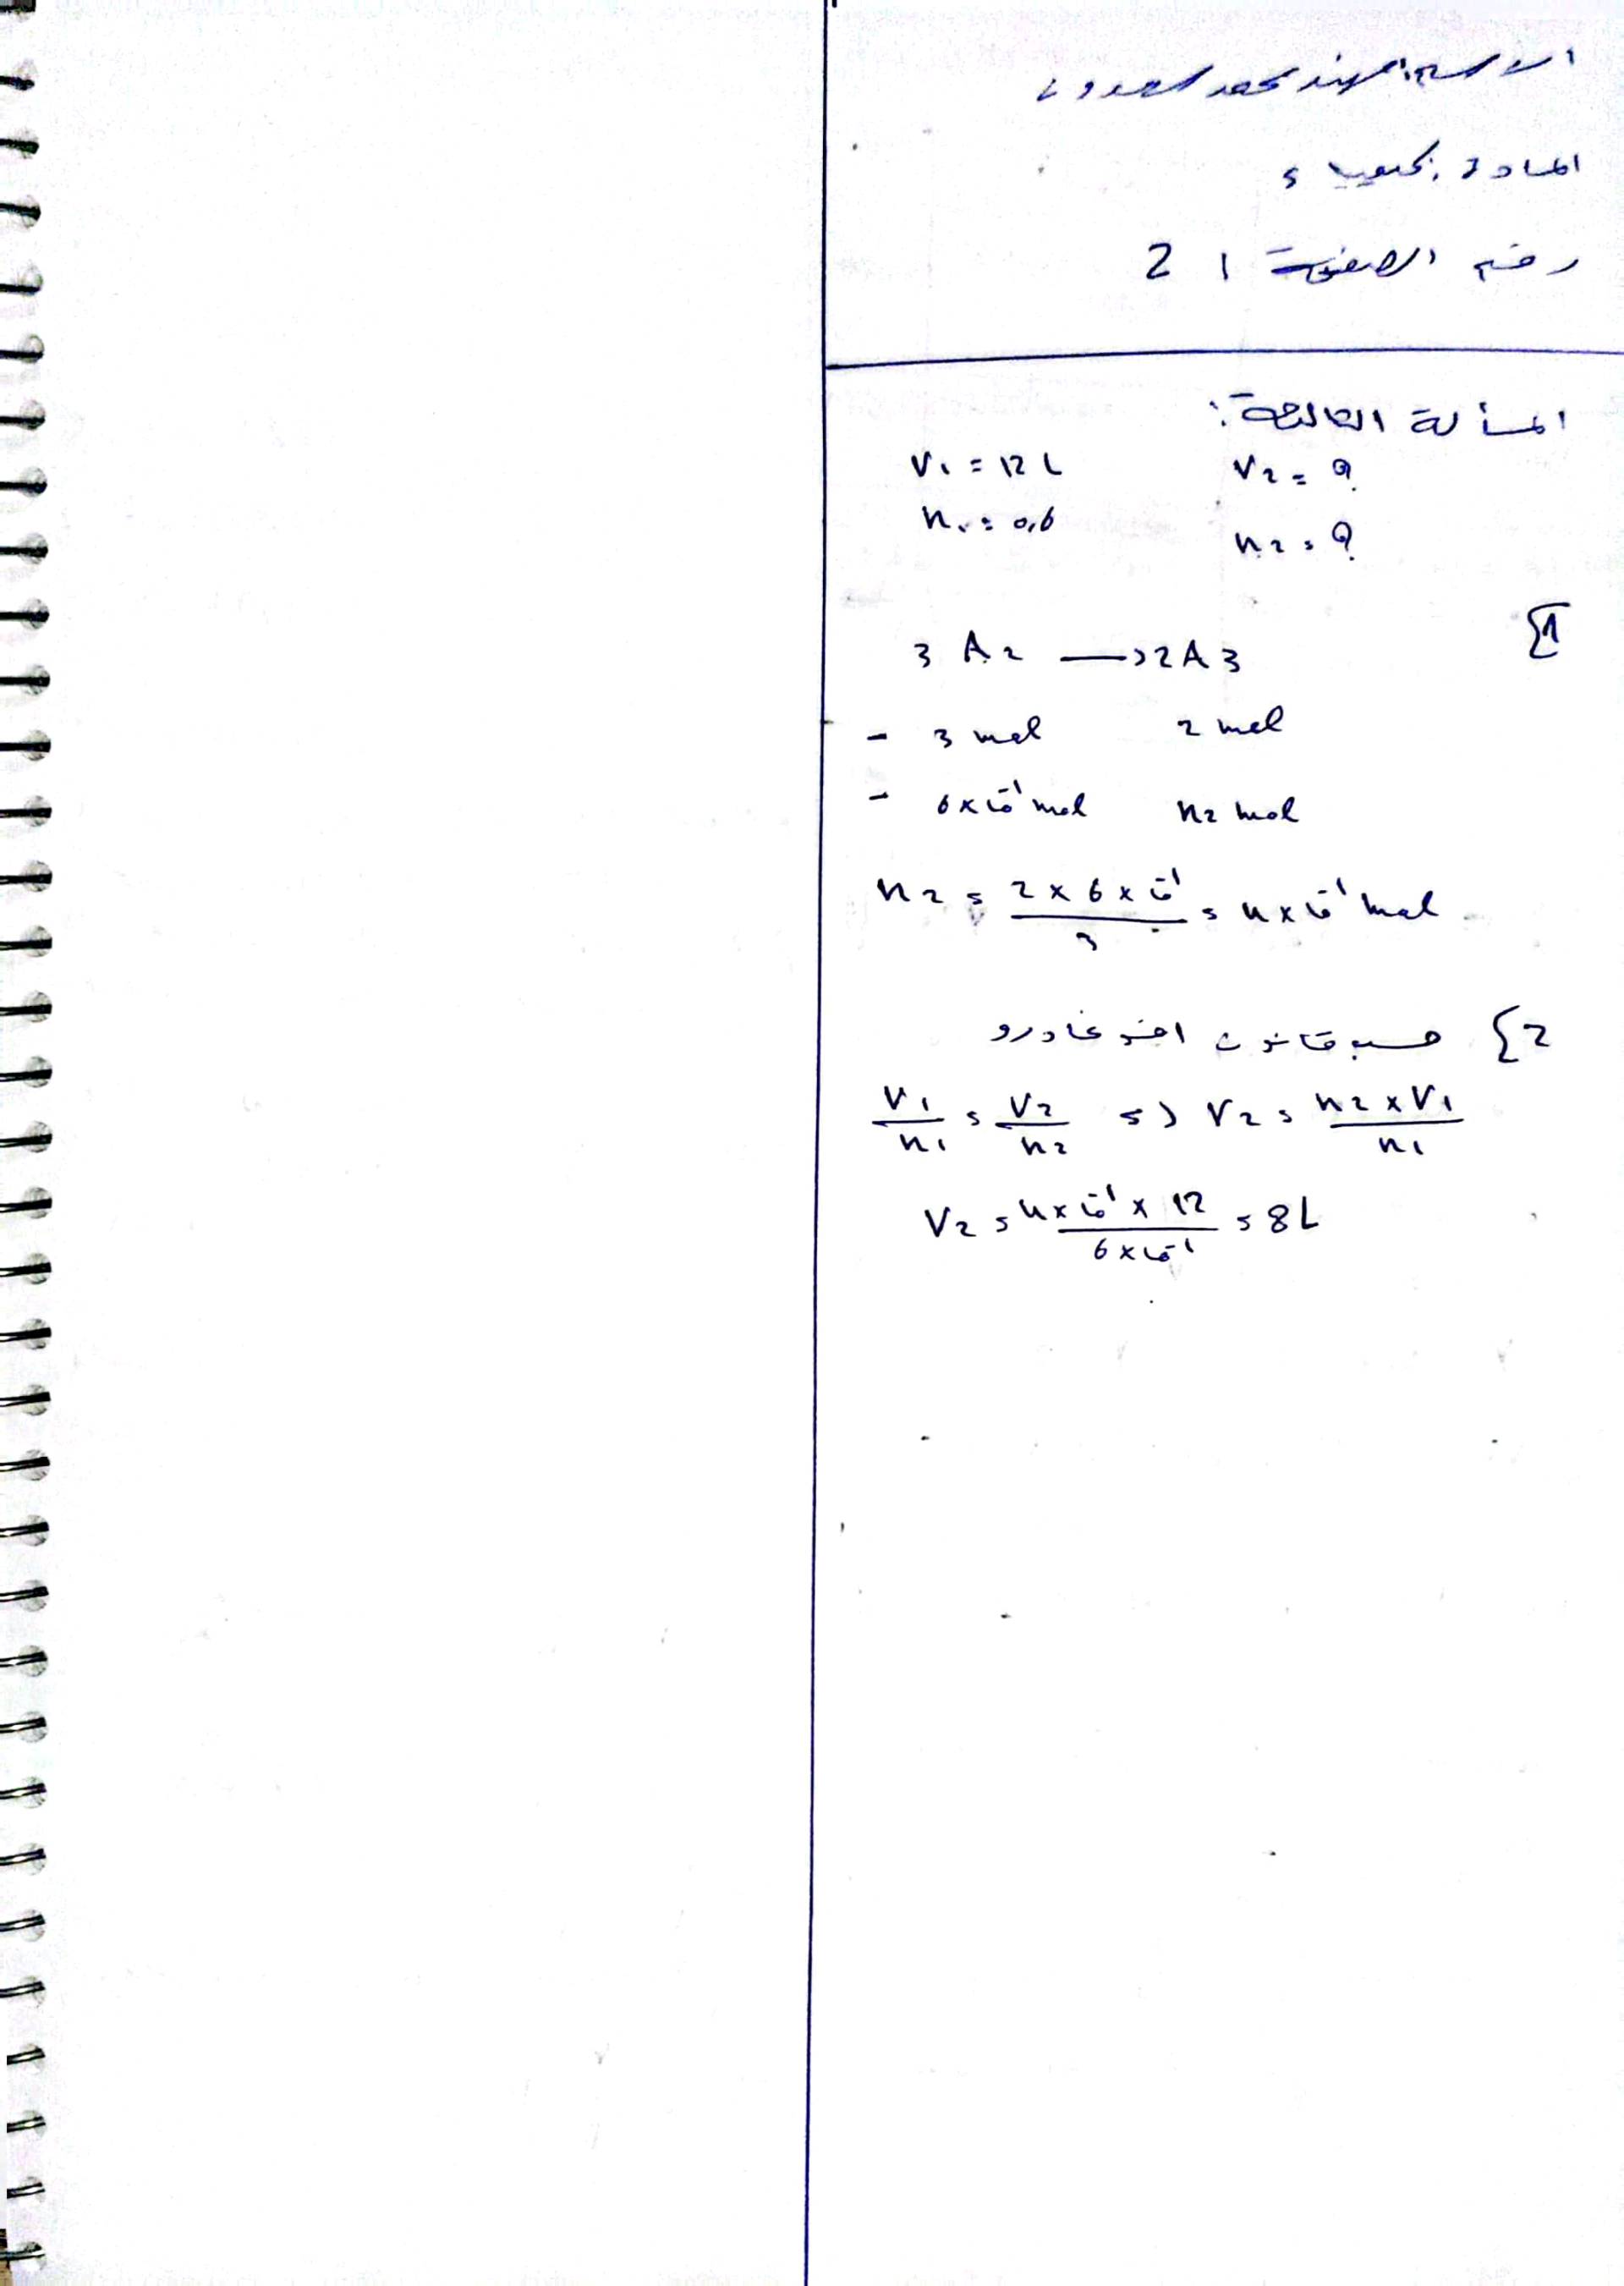 الاسم: مهند محمد السعدون
المادة: كيمياء
رقم الصفحة: 2
المسألة الثالثة:
V1 = 12 L V2 = ?
n1 = 0,6 n2 = ?
1}
3 A2 → 2 A3
- 3 mol 2 mol
- 6 × 10⁻¹ mol n2 mol
n2 = (2 × 6 × 10⁻¹) / 3 = 4 × 10⁻¹ mol
2} حسب قانون افوغادرو
V1/n1 = V2/n2 => V2 = (n2 × V1) / n1
V2 = (4 × 10⁻¹ × 12) / (6 × 10⁻¹) = 8 L